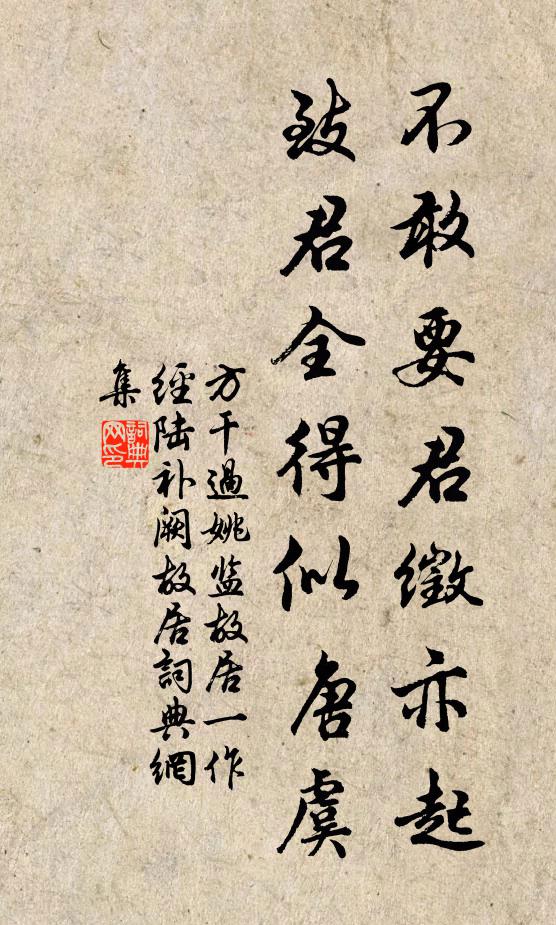 不敢要君徵亦起
致君全得似唐虞
方干過姚监故居一作
經陆补阙故居詞典網
集
詞典
网印